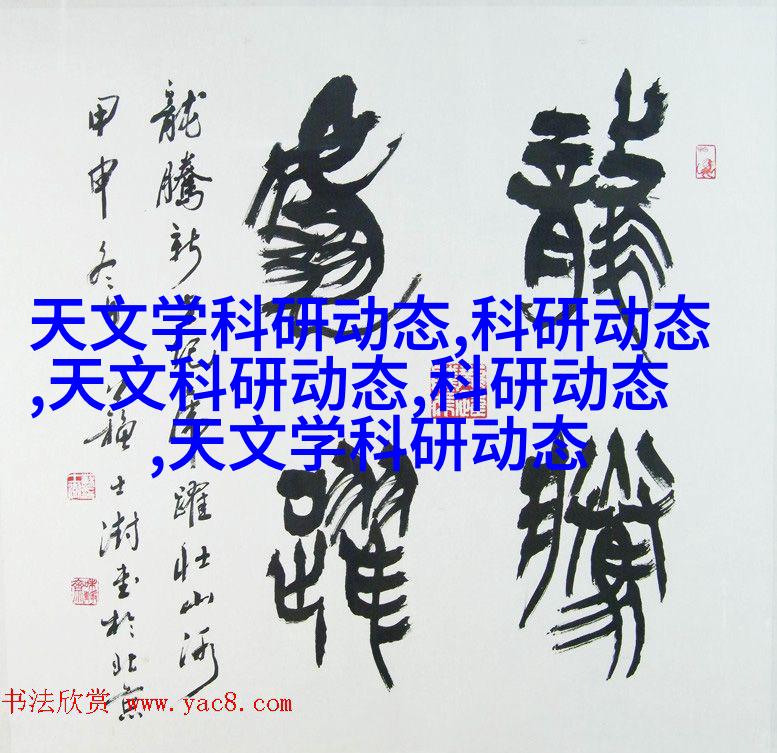 龍騰
虎躍
龍騰新世紀虎躍壯山河
甲申冬月蘇士澍書於北京
天文学科研动态,科研动态
,天文科研动态,科研动态
,天文学科研动态
书法欣赏 www.yac8.com